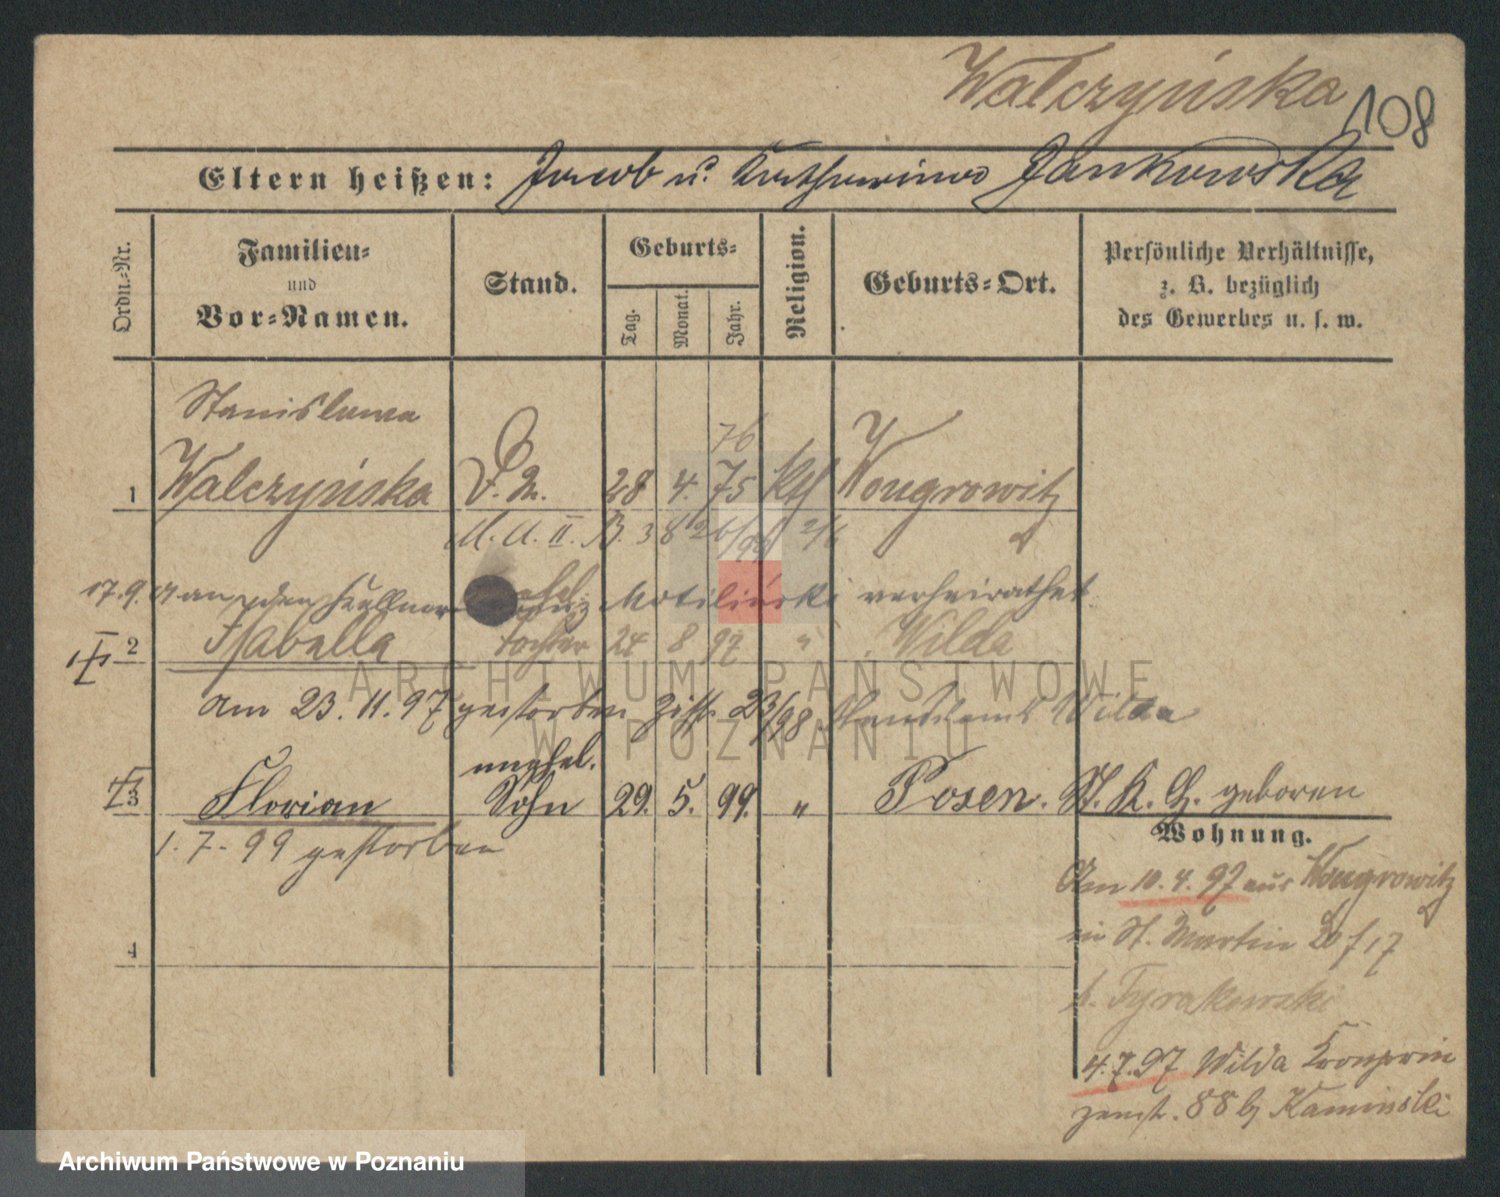 Walczyńska
108
Eltern heißen: Jacob u. Katharina Jankowska
Ordn.-Nr.
Familien-
und
Vor-Namen.
Stand.
Geburts-
Tag.
Monat.
Jahr.
Religion.
Geburts-Ort.
Persönliche Verhältnisse,
z. B. bezüglich
des Gewerbes u. s. w.
Stanislawa
76
1 Walczyńska D. M. 28 4. 75 kth Wongrowitz
M. A. II. B. 38 26/98
17.9. an den Kellner verheirathet
2 Isabella Tochter 24 8 97 " Wilda
Am 23. 11. 97 gestorben 23/98 Standesamt Wilda
unehel.
3 Florian Sohn 29. 5. 99. " Posen. St. K. H. geboren
1. 7. 99 gestorben
4
Wohnung.
Am 10. 4. 97 aus Wongrowitz
in St. Martin 20 f 17
4.7.97 Wilda Kronprin
zenstr. 88 b/ Kaminski
ARCHIWUM PAŃSTWOWE
W POZNANIU
Archiwum Państwowe w Poznaniu